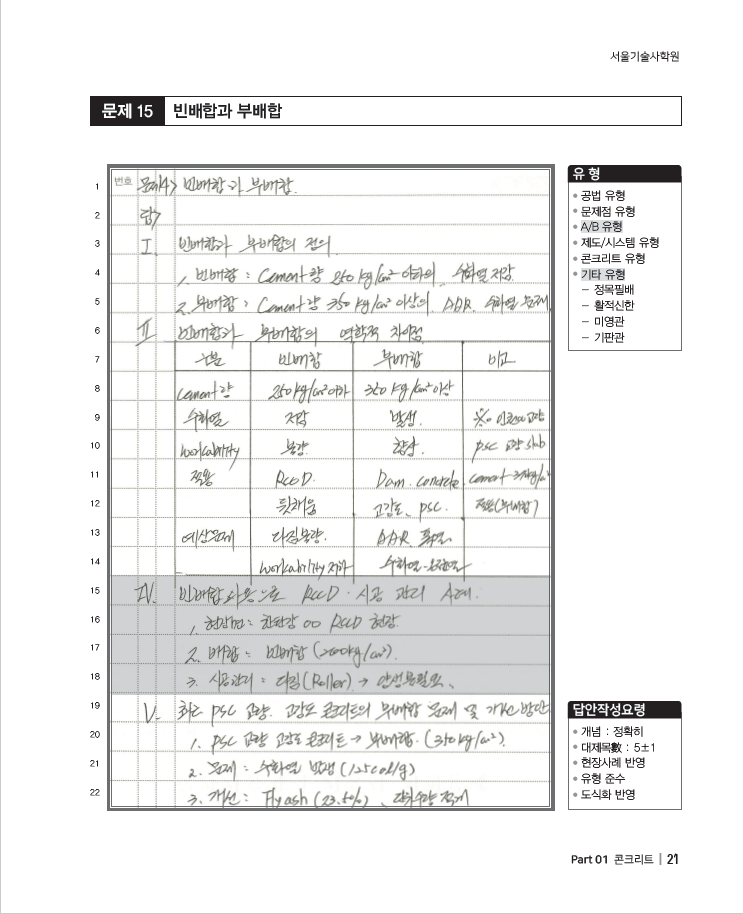 서울기술사학원
문제 15 빈배합과 부배합
번호 문제4> 빈배합과 부배합.
답>
I. 빈배합과 부배합의 정의
1. 빈배합 : Cement량 250kg/cm² 이하의 수화열 저감.
2. 부배합 : Cement량 350kg/cm² 이상의 AAR. 수화열 문제.
II. 빈배합과 부배합의 역학적 차이점
구분 빈배합 부배합 비고
Cement량 250kg/cm²이하 350kg/cm²이상
수화열 저감 발생. ※ 교량
workability 불량. 향상. PSC 교량 slab
적용 RCCD. Dam. concrete. cement
뒷채움 고강도, PSC. 적용(부배합)
예상문제 다짐불량. AAR
workability 저하 수화열
IV. 빈배합 사용으로 RCCD 시공 관리 사례.
1. 현장명 : 한탄강 00 RCCD 현장.
2. 배합 : 빈배합 (200kg/cm²).
3. 시공관리 : 다짐(Roller) →
V. 최근 PSC 교량. 고강도 콘크리트의 부배합 문제 및 개선 방안
1. PSC 교량 고강도 콘크리트 → 부배합. (350kg/cm²).
2. 문제 : 수화열 발생 (125cal/g)
3. 개선 : Fly ash (23.5%), 단위수량 적게
유 형
• 공법 유형
• 문제점 유형
• A/B 유형
• 제도/시스템 유형
• 콘크리트 유형
• 기타 유형
– 정목필배
– 활적신한
– 미영관
– 기판관
답안작성요령
• 개념 : 정확히
• 대제목數 : 5±1
• 현장사례 반영
• 유형 준수
• 도식화 반영
1
2
3
4
5
6
7
8
9
10
11
12
13
14
15
16
17
18
19
20
21
22
Part 01 콘크리트 | 21